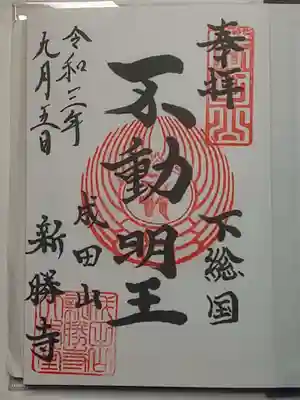 奉拝
下総国
不動明王
成田山
新勝寺
令和三年
九月五日